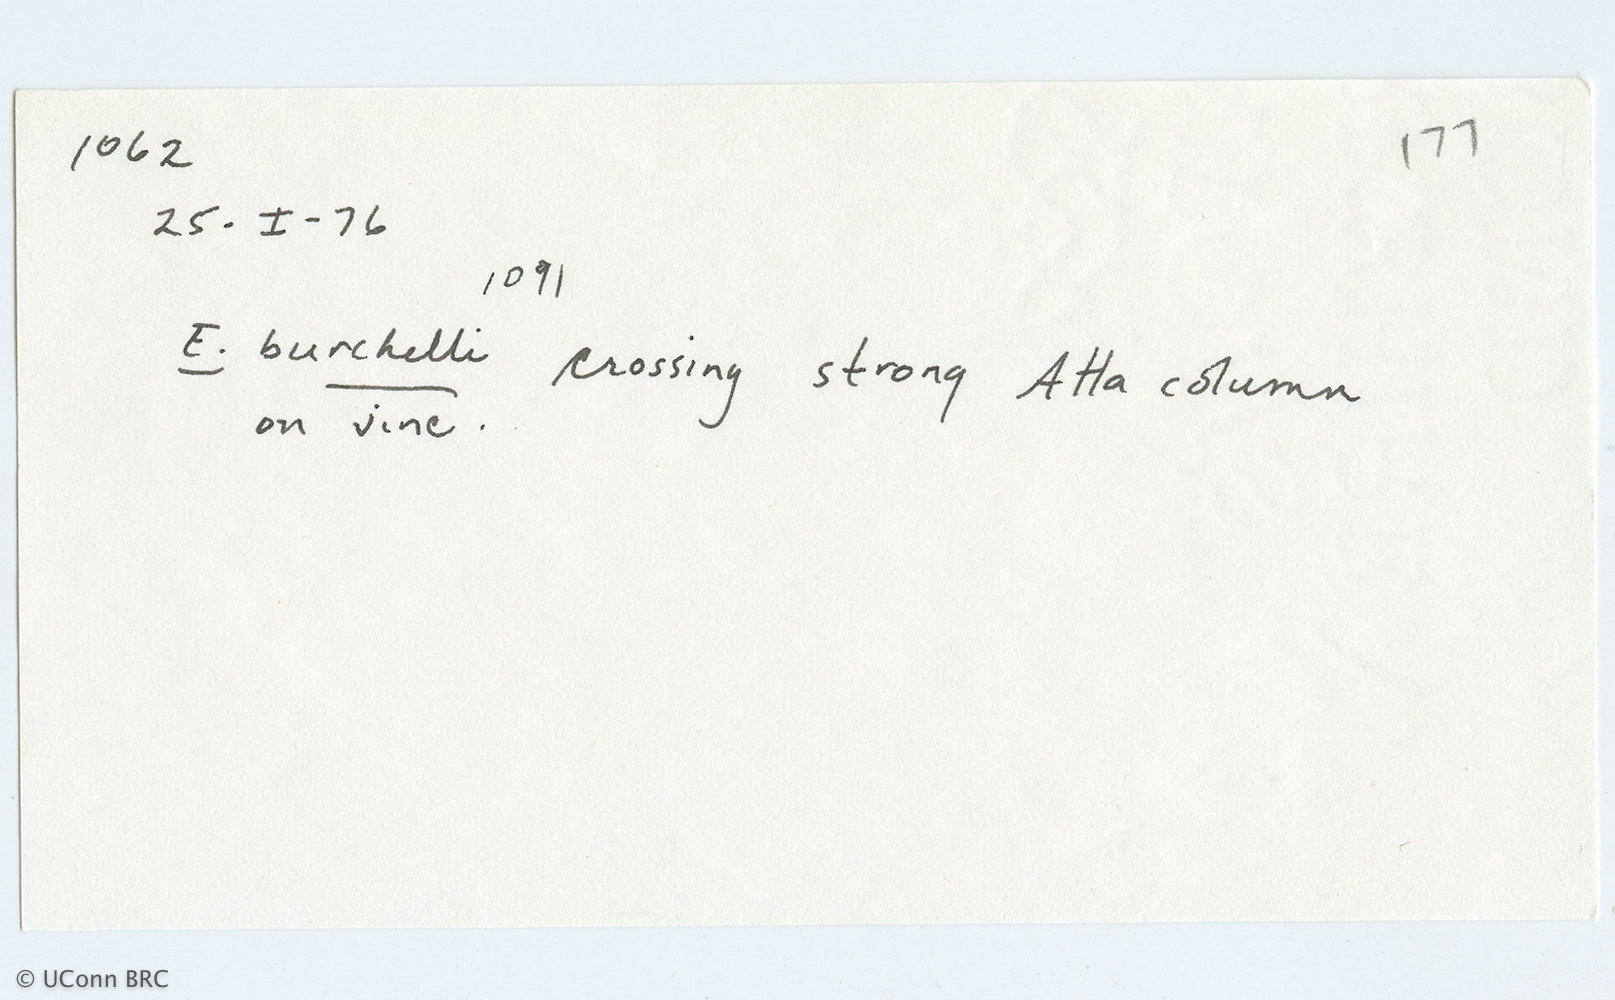 1062
177
25. I-76
1091
E. burchelli crossing strong Atta column
on vine.
© UConn BRC